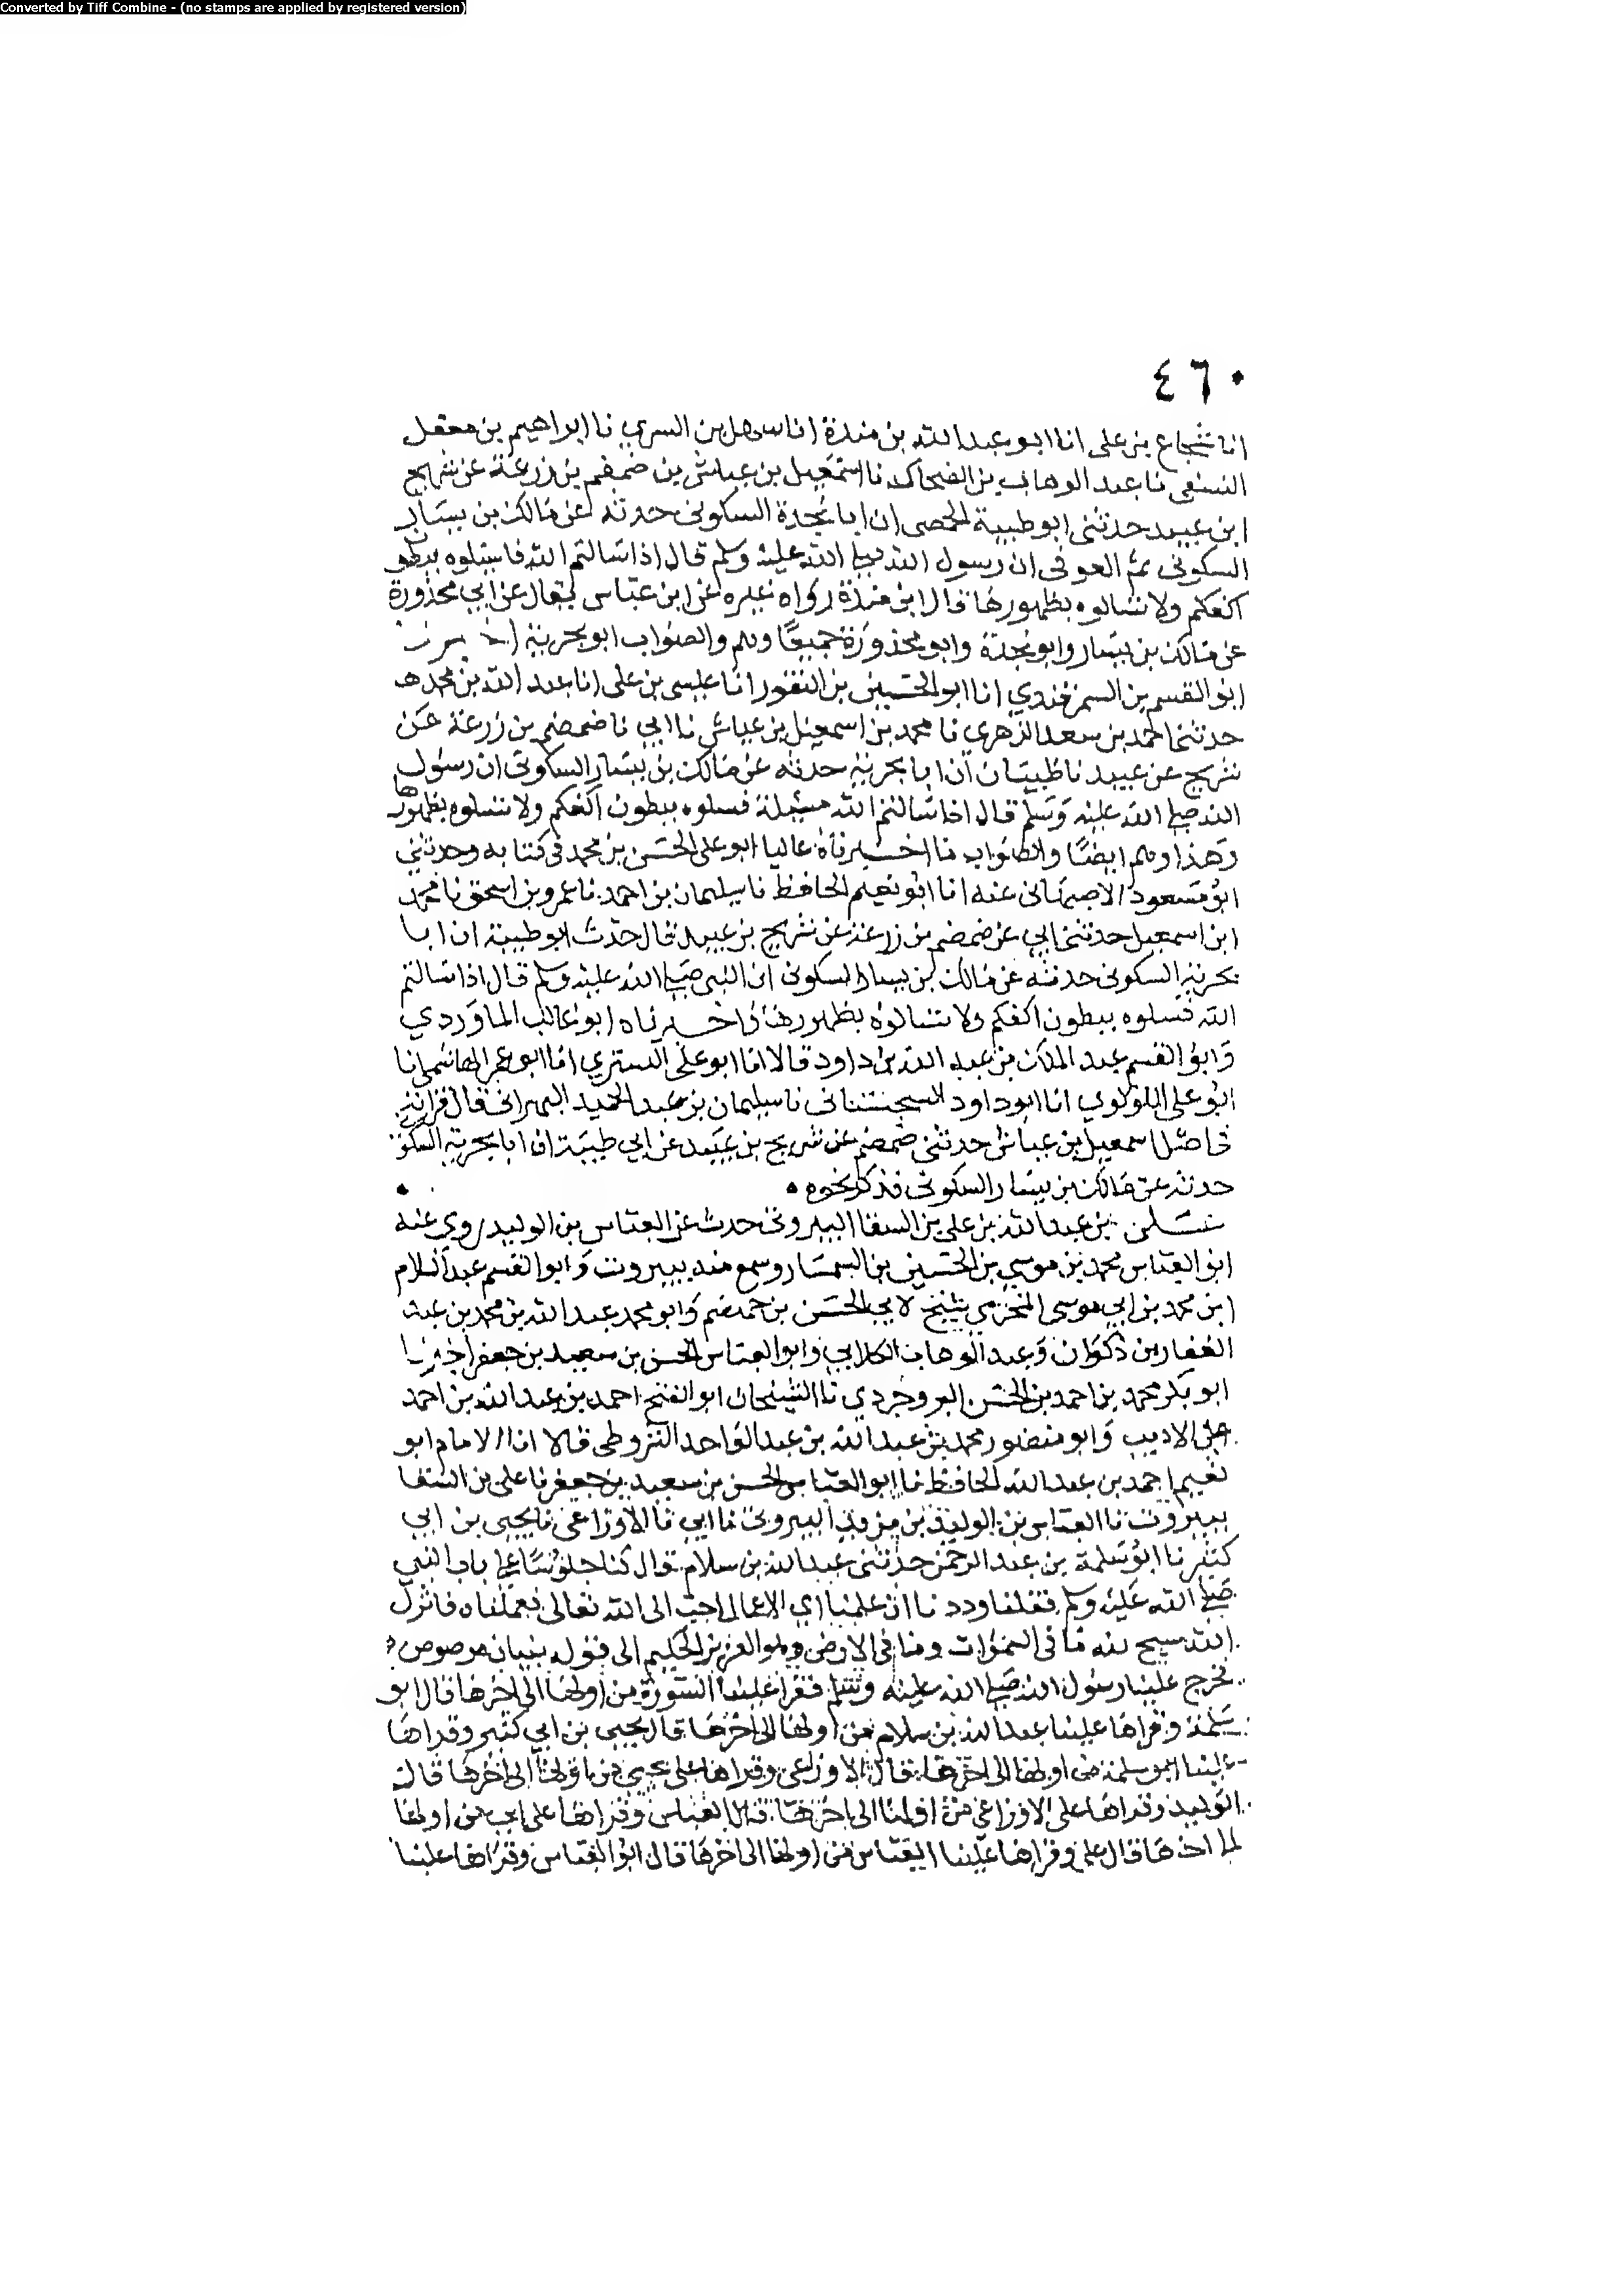 Converted by Tiff Combine - (no stamps are applied by registered version)
٤٦٠
انا شجاع بن على انا ابو عبد الله بن مندة انا سهل بن السري نا ابراهيم بن معقل
النسفى نا عبد الوهاب بن الضحاك نا اسمعيل بن عياش بن ضمضم بن زرعة عن شريح
ابن عبيد حدثنى ابو طبيبة الحمصى ان ابا نجدة السكونى حدثه عن مالك بن يسار
السكونى ثم العوفى ان رسول الله صلى الله عليه وسلم قال اذا سالتم الله فاسئلوه ببطو
اكفكم ولا تسالوه بظهورها قال ابن مندة رواه غيره عن ابن عياش فقال عن ابي محذورة
عن مالك بن يسار وابو نجدة وابو محذورة جميعا وهم والصواب ابو بحرية
ابو القسم بن السمرقندي انا ابو الحسين بن النقور انا عيسى بن على انا عبد الله بن محمد
حدثنى احمد بن سعد الزهرى نا محمد بن اسمعيل بن عياش نا ابي نا ضمضم بن زرعة عن
شريح عن عبيد نا ظبيان ان ابا بحرية حدثه عن مالك بن يسار السكونى ان رسول
الله صلى الله عليه وسلم قال اذا سالتم الله مسئلة فسلوه ببطون اكفكم ولا تسلوه بظهورها
وهذا وهم ايضا والصواب ما اخبرناه عاليا ابو على الحسن بن محمد فى كتابه وحدثني
ابو مسعود الاصبهانى عنه انا ابو نعيم الحافظ نا سليمان بن احمد نا عمرو بن اسحق نا محمد
ابن اسمعيل حدثنى ابي عن ضمضم بن زرعة عن شريح بن عبيد قال حدث ابو طبيبة ان ابا
بحرية السكونى حدثه عن مالك بن يسار السكونى ان النبى صلى الله عليه وسلم قال اذا سالتم
الله فسلوه ببطون اكفكم ولا تسالوه بظهورها واخبرناه ابو غالب الماوردي
وابو القسم عبد الملك بن عبد الله بن داود قالا انا ابو على التستري انا ابو عمر الهاشمى انا
ابو على اللولوي انا ابو داود السجستانى نا سليمان بن عبد الحميد البهرانى قال قراته
في اصل اسمعيل بن عياش حدثنى ضمضم عن شريح بن عبيد عن ابي طبيبة ان ابا بحرية السكونى
حدثه عن مالك بن يسار السكونى فذكر نحوه
بن عبد الله بن على بن السفا البيروتى حدث عن العباس بن الوليد روي عنه
ابو العباس محمد بن موسي بن الحسين بن السمسار وسمع منه ببيروت وابو القسم عبد السلام
ابن محمد بن ابي موسى المخرمي شيخ لابي الحسن بن جهضم وابو محمد عبد الله بن محمد بن عبد
الغفار بن ذكوان وعبد الوهاب الكلابي وابو العباس الحسن بن سعيد بن جعفر اخبرنا
ابو بكر محمد بن احمد بن الحسن البروجردي نا الشيخان ابو الفتح احمد بن عبد الله بن احمد
الاديب وابو منصور محمد بن عبد الله بن عبد الواحد الشروطى قالا انا الامام ابو
نعيم احمد بن عبد الله الحافظ نا ابو العباس الحسن بن سعيد بن جعفر نا على بن السفا
ببيروت نا العباس بن الوليد بن مزيد البيروتى نا ابي نا الاوزاعى نا يحيى بن ابي
كثير نا ابو سلمة بن عبد الرحمن حدثنى عبد الله بن سلام قال كنا جلوسا على باب النبي
صلى الله عليه وسلم فقلنا وددنا ان علمنا اي الاعمال احب الى الله تعالى فعملناه فانزل
الله سبح لله ما فى السموات وما فى الارض وهو العزيز الحكيم الى قوله بنيان مرصوص
فخرج علينا رسول الله صلى الله عليه وسلم فقرا علينا السورة من اولها الى اخرها قال ابو
سلمة وقراها علينا عبد الله بن سلام من اولها الى اخرها قال يحيى بن ابي كثير وقراها
علينا ابو سلمة من اولها الى اخرها قال الاوزاعى وقراها على يحيى من اولها الى اخرها قال
الوليد وقراها على الاوزاعى من اولها الى اخرها قال العباس وقراها على ابي من اولها
الى اخرها قال على وقراها علينا العباس من اولها الى اخرها قال ابو العباس وقراها علينا